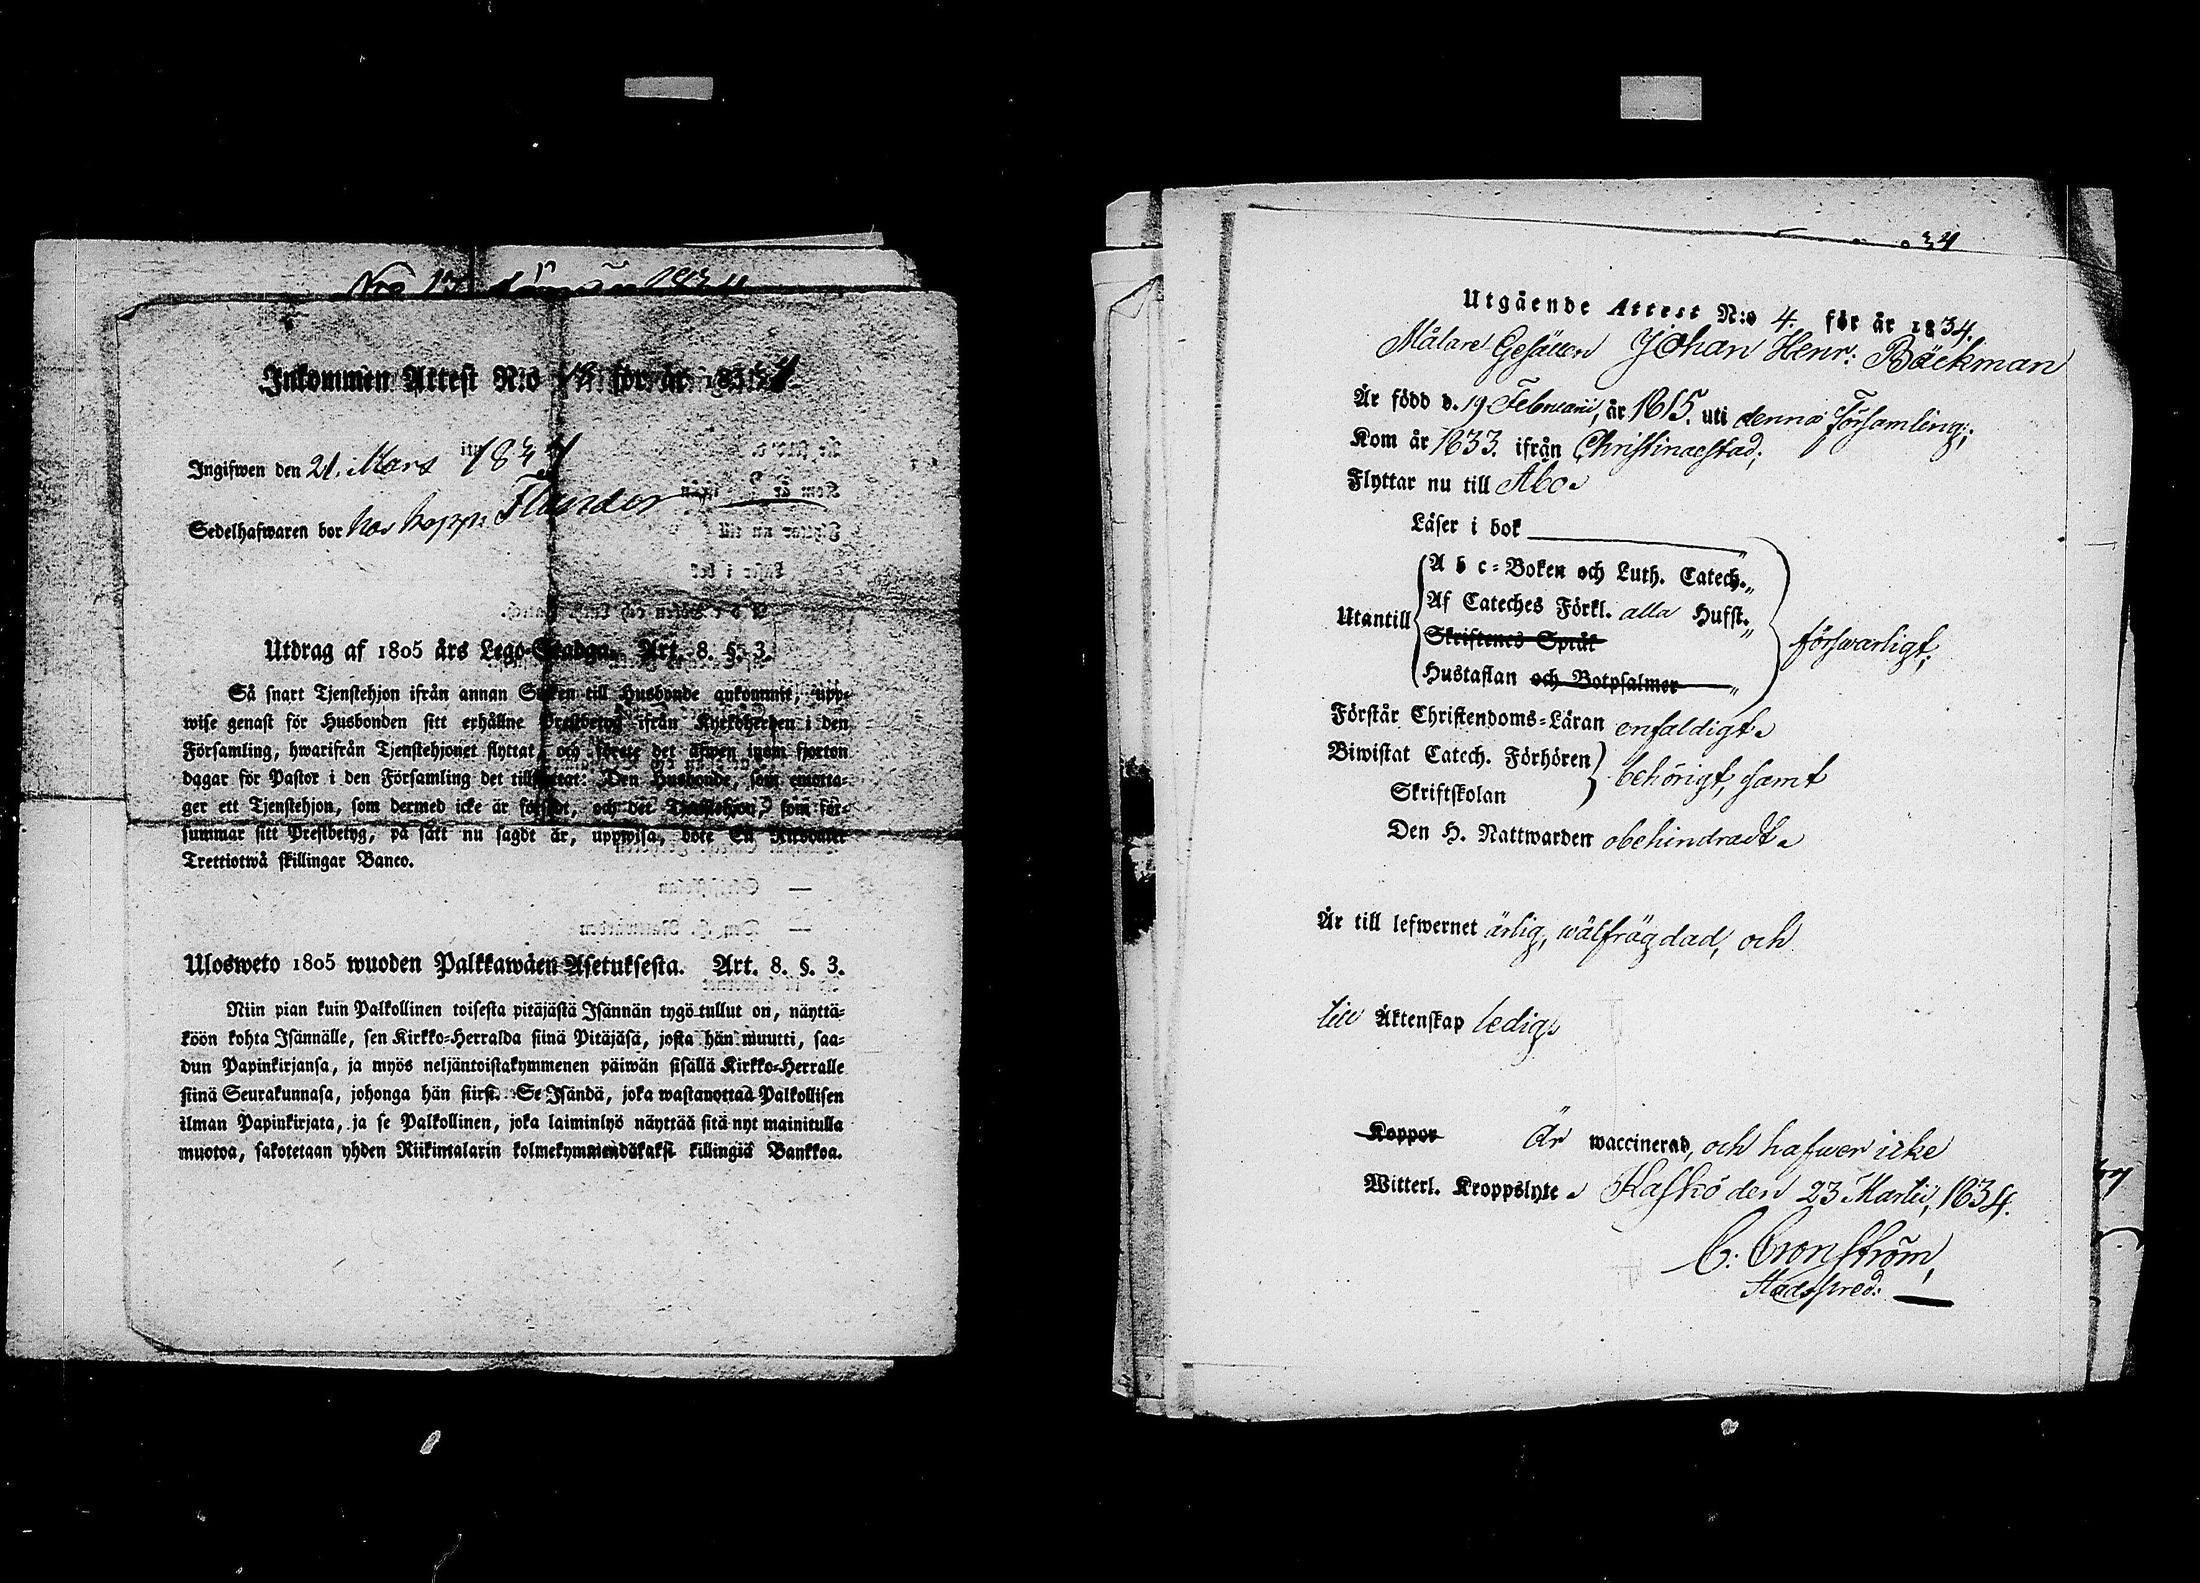 Nro 17
Inkommen Attest N:o för år 1834
Ingifwen den 21. Mars 1834
Sedelhafwaren bor hos kopp: Flander
Utdrag af 1805 års Lego-Stadga. Art. 8. §. 3.
Så snart Tjenstehjon ifrån annan Socken till Husbonde ankommit, upp-
wise genast för Husbonden sitt erhållne Prestbetyg ifrån Kyrkoherden i den
Församling, hwarifrån Tjenstehjonet flyttat, och förete det äfwen inom fjorton
dagar för Pastor i den Församling det tillflyttat: Den Husbonde, som emotta-
ger ett Tjenstehjon, som dermed icke är försedt, och det Tjenstehjon, som för-
summar sitt Prestbetyg, på sätt nu sagdt är, uppwisa, böte En Riksdaler
Trettiotwå skillingar Banco.
Ulosweto 1805 wuoden Palkkawäen Asetuksesta. Art. 8. §. 3.
Niin pian kuin Palkollinen toisesta pitäjästä Isännän tygö tullut on, näyttä-
köön kohta Isännälle, sen Kirkko-Herralda siinä Pitäjäsä, josta hän muutti, saa-
dun Papinkirjansa, ja myös neljäntoistakymmenen päiwän sisällä Kirkko-Herralle
siinä Seurakunnasa, johonga hän siirst. Se Isändä, joka wastanottaa Palkollisen
ilman Papinkirjata, ja se Palkollinen, joka laiminlyö näyttää sitä nyt mainitulla
muotoa, sakotetaan yhden Riikintalarin kolmekymmendäkaksi killingiä Bankkoa.
34
Utgående Attest N:o 4. för år 1834.
Målare Gesällen Johan Henr: Bäckman
Är född d. 19 Februarii, år 1815. uti denna Församling;
Kom år 1833. ifrån Christinaestad;
Flyttar nu till Åbo.
Läser i bok
A b c-Boken och Luth. Catech. „
Utantill Af Cateches Förkl. alla Hufst. „ försvarligt;
Skriftenes Språk
Hustaflan och Botpsalmer „
Förstår Christendoms-Läran enfaldigt.
Biwistat Catech. Förhören
behörigt, samt
Skriftskolan
Den H. Nattwarden obehindradt.
Är till lefwernet ärlig, wälfrägdad, och
till Äktenskap ledig.
Koppor Är waccinerad, och hafwer icke
Witterl. Kroppslyte. Kaskö den 23 Martii, 1834.
C: Cronström,
Stadspred: